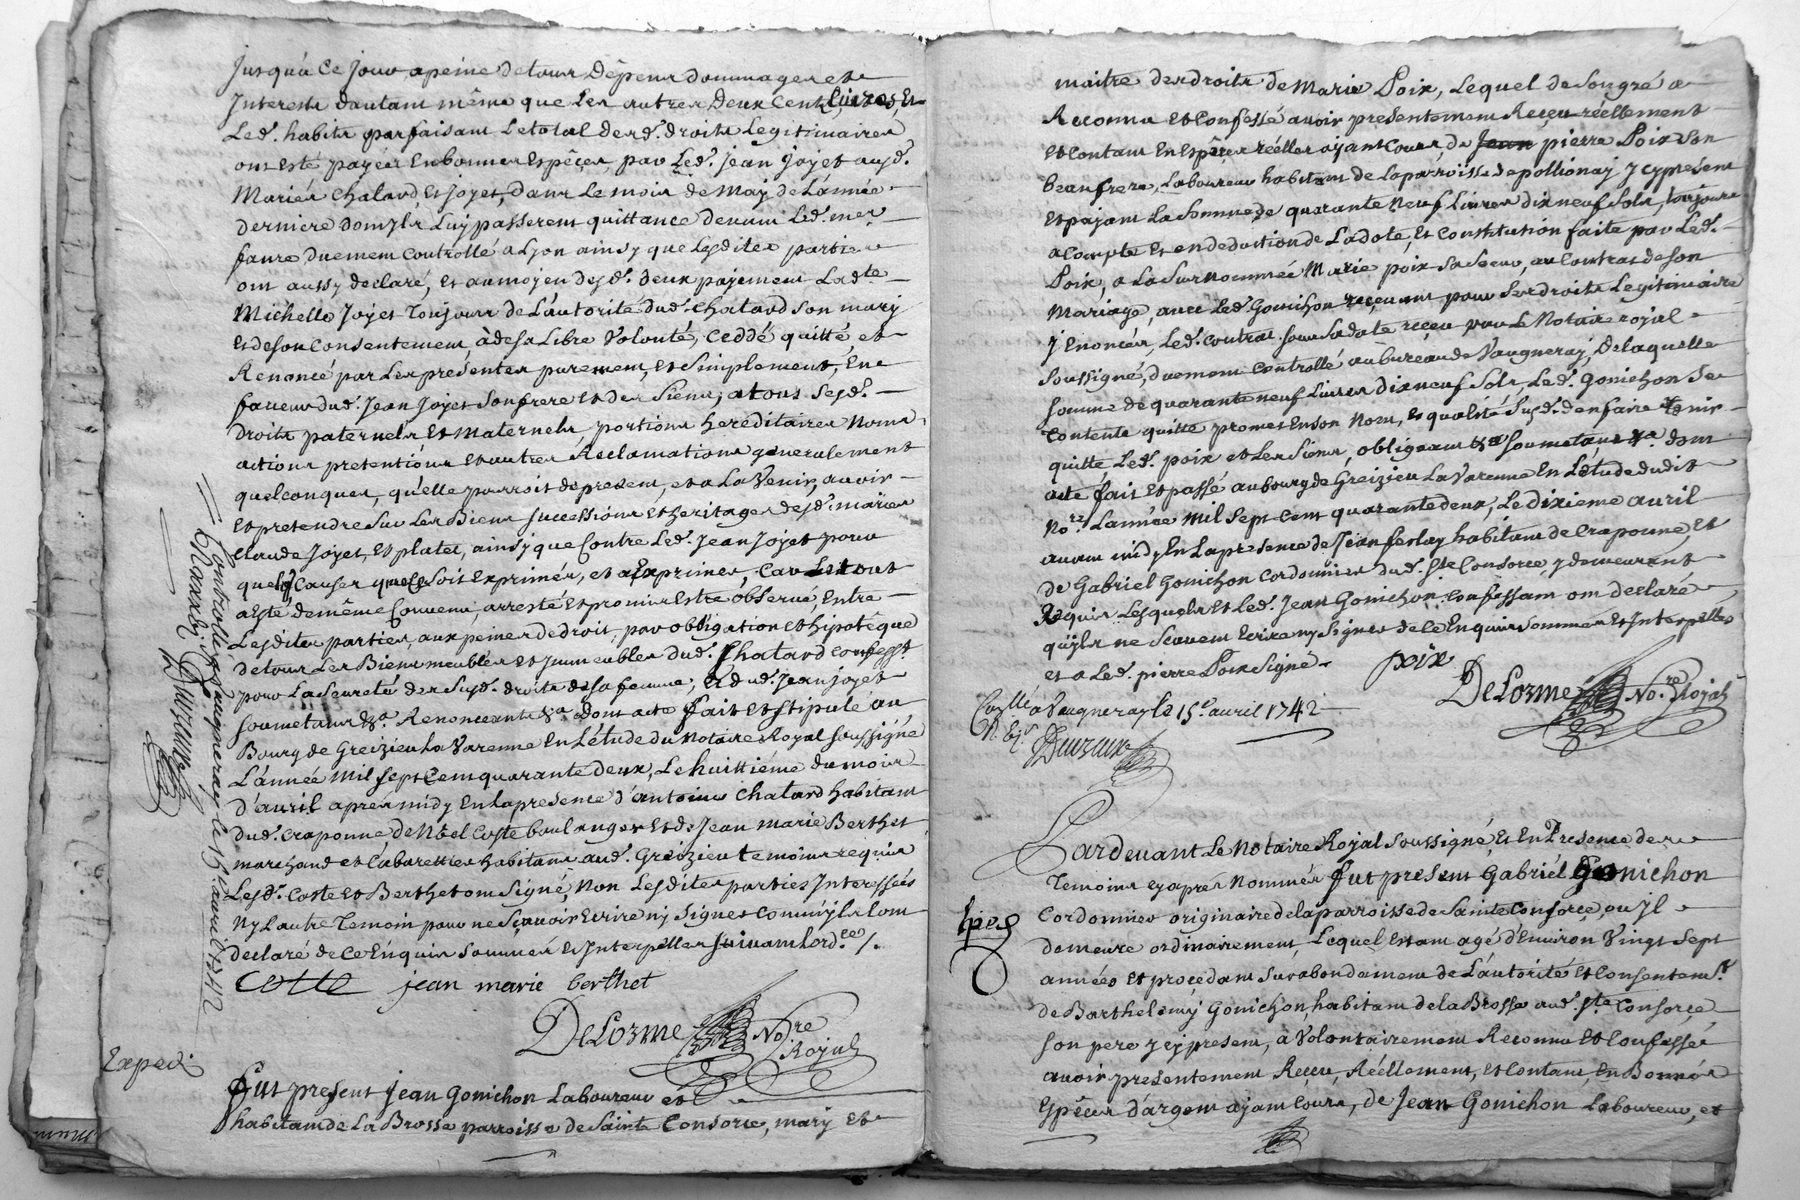 jusqu'à ce jour, apeine de tous dêpens dommages et
Interests dautant même que les autres Deux Cent Livres, Et
Led. habits parfaisant Letotal desd. droits Legitimaires
ont Esté payées Enbonnes Espêces, par Led. jean joyet ausd.
Mariés Chatard, Et joyet, dans Le mois de May de L'année
derniere dont jls Luy passerent quittance devant Led. me
faure duement Controllé a Lyon ainsy que Lesdites parties
ont aussy declaré, Et aumoyen desd. deux payement Ladte
Michelle Joyet Toujours de L'autorité dud. Chatard son mary
Et deson Consentement, à desa Libre Volonté, Ceddé quitté, et
Renoncé par Les presentes purement, Et simplement, En
faveur dud. Jean Joyet son frere Et des siens, atous sesd.
Droits paternels Et Maternels, portions hereditaires Noms,
actions pretentions Et autres Reclamations generalement
quelconques, qu'elle pourroit depresent, et a La Venir, avoir
Et pretendre sur Les Biens successions Et heritages desd. mariés
Claude Joyet, Et platet, ainsy que Contre Led. Jean Joyet pour
quelq Causes que ce soit Exprimés, et a Exprimer, Car Le tout
a Esté de même Convenu, arresté Et promis Estre observé, Entre
Lesdites parties, aux peines de droit, par obligation Et hipotêque
de tous Les Biens meubles Et jmmeubles dud. Chatard confesst
pour La seureté des susd. droits de sa femme, Et dud. Jean joyet
soumetans &a. Renonceants &a. Dont acte fait Et stipulé au
Bourg de Greizieu La Varenne En L'étude du Notaire Royal soussigné
L'année mil sept Cent quarante deux, Le huittiéme du mois
D'avril aprés midy En La presence d'antoine Chatard habitant
dud. Craponne de Nöel Coste boulanger Et de Jean Marie Berthet
marchand et Cabarettier habitant aud. Greizieu temoins requis
Lesd. Coste Et Berthet ont signé, Non Lesdites parties Interessées
Ny L'autre Temoin pour ne sçavoir Ecrire ny signer Comm'jls l'ont
declaré de ce Enquis sommés Et Interpellés suivant Lord.ce /.
Coste jean marie berthet
DeLorme No.re
Royal
Controllé a Vaugneray le 15 avril 1742
Duzeure
Exped.
Fut present jean Gonichon Laboureur et
habitant de La Brosse parroisse de Sainte Consorce, mary Et
maitre des droits de Marie Poix, Lequel de son gré a
Reconnu Et Confessé avoir presentement Reçeu réellement
Et Contant En Espêces réelles ayant Cours, de Jean pierre Poix son
beaufrere, Laboureur habitant de La parroisse de pollionay jcy present
Et payant La somme de quarante Neuf Livres dix neuf sols, toujours
acompte Et en deduction de La dote, Et Constitution faite par Led.
Poix, a La surnommée Marie poix sa soeur, au Contrat de son
Mariage, avec Led. Gonichon reçeu pour ses droits Legitimaire
y Enoncés, Led. contrat sous sa date reçeu par Le Notaire royal
soussigné, duement Controllé au bureau de Vaugneray, De laquelle
somme de quarante neuf Livres Dix neuf sols, Led. Gonichon se
Contente quitte promet En son Nom, Et qualité susd. d'en faire tenir
quitte, Led. poix et Les siens, obligeant &a soumetant &a dont
acte fait Et passé au bourg de Greizieu La Varenne En L'étude dudit
No.re L'année Mil sept Cent quarante deux, Le dixieme avril
avant midy En La presence de Jean ferlay habitant de Craponne, Et
de Gabriel Gonichon Cordonnier dud. Ste Consorce, y demeurant
Requis Lesquels Et Led. Jean Gonichon confessant ont declaré
qu'jls ne scavent Ecrire ny signer de ce Enquis sommés Et Interpellés
et a Led. pierre Poix signé.
poix
DeLorme No.re Royal
Con.llé a Vaugneray le 15e. avril 1742
Duzeure
Pardevant Le Notaire Royal soussigné Et En Presence des
Temoins cy aprés Nommés fut present Gabriél Gonichon
Cordonnier originaire de la parroisse de Sainte Consorce, ou jl
demeure ordinairement, Lequel Estant agé d'Environ Vingt sept
années Et procedant surabondament de L'autorité Et Consentemt
de Barthelemy Gonichon habitant de la Brosse aud. Ste Consorce
son pere jcy present, a Volontairement Reconnu Et Confessé
avoir presentement Reçeu, Réellement, et Contant, En Bonnes
Espêces d'argent ayant Cours, de Jean Gonichon Laboureur, et